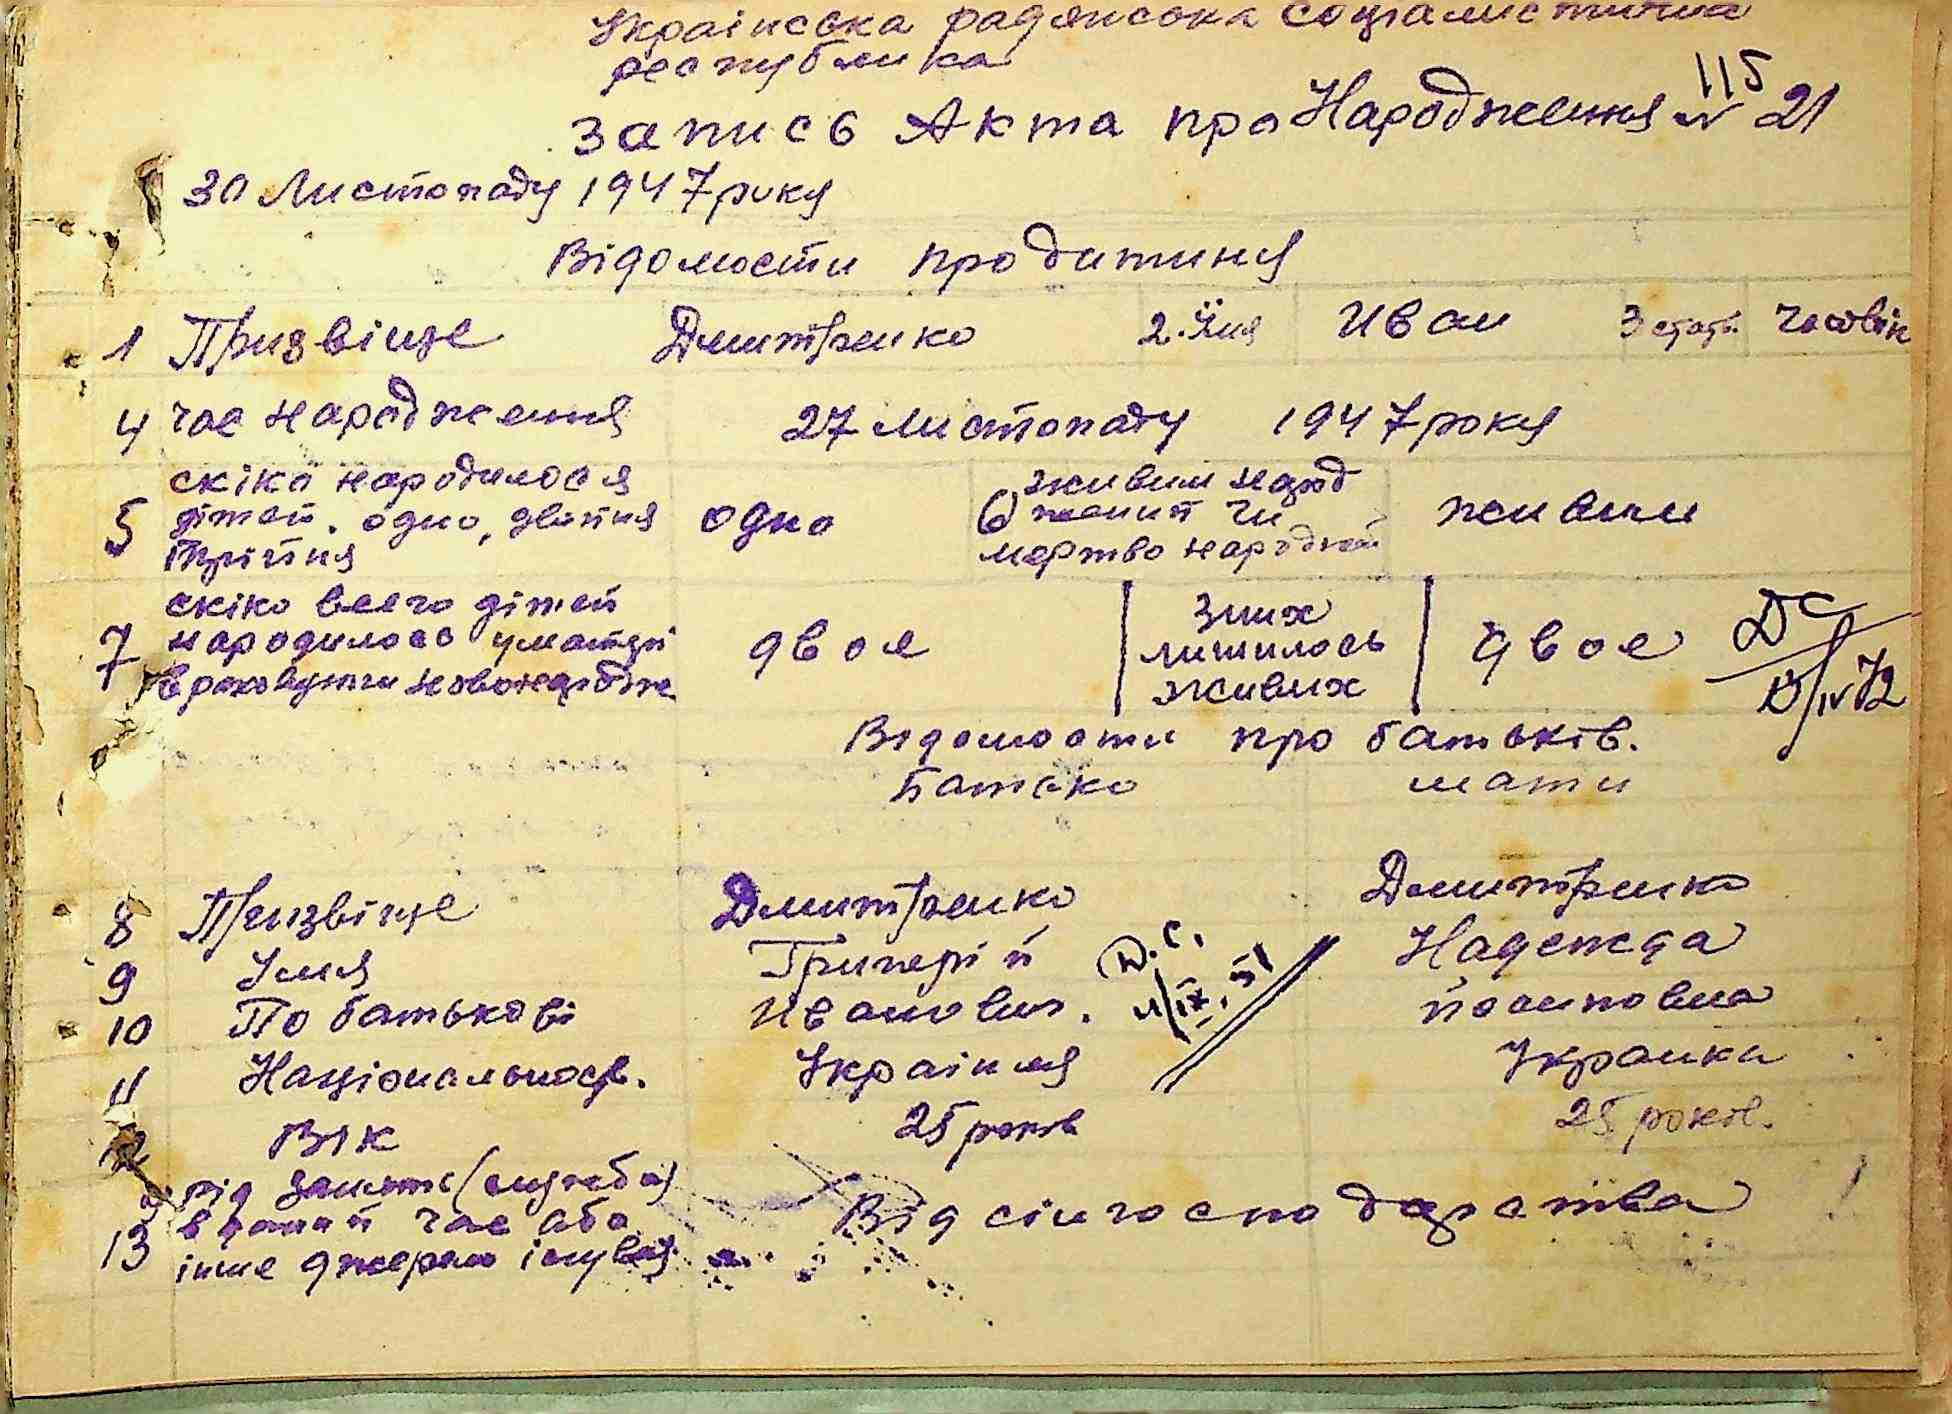 Українська радянська Соціалистична
республика
115
Запись Акта про Народження № 21
30 Листопаду 1947 року
Відомости про дитиня
1 Призвіще Дмитренко 2. Имя Иван 3 стать Чоловік
4 час народження 27 листопаду 1947 року
скіко народилося
5 дітей. одно, двійня
трійня
одно
6 живим народ
жений чи
мертво народжен
живим
скіко всего дітей
7 народилось у матері
враховуючи новонародже
двое
З них
лишилось
живих
двое
ДС
IV 72
Відомости про батьків.
Батько мати
8 Призвіще Дмитренко Дмитренко
9 Имя Григорій Надежда
Д.С.
10 По батькові Иванович. Йосиповна
11 Національность. Украінця Украинка
12 Вік 25 років 25 років.
від занять (служба)
13 в даний час або
інше джерело існував
Від сінгосподарства